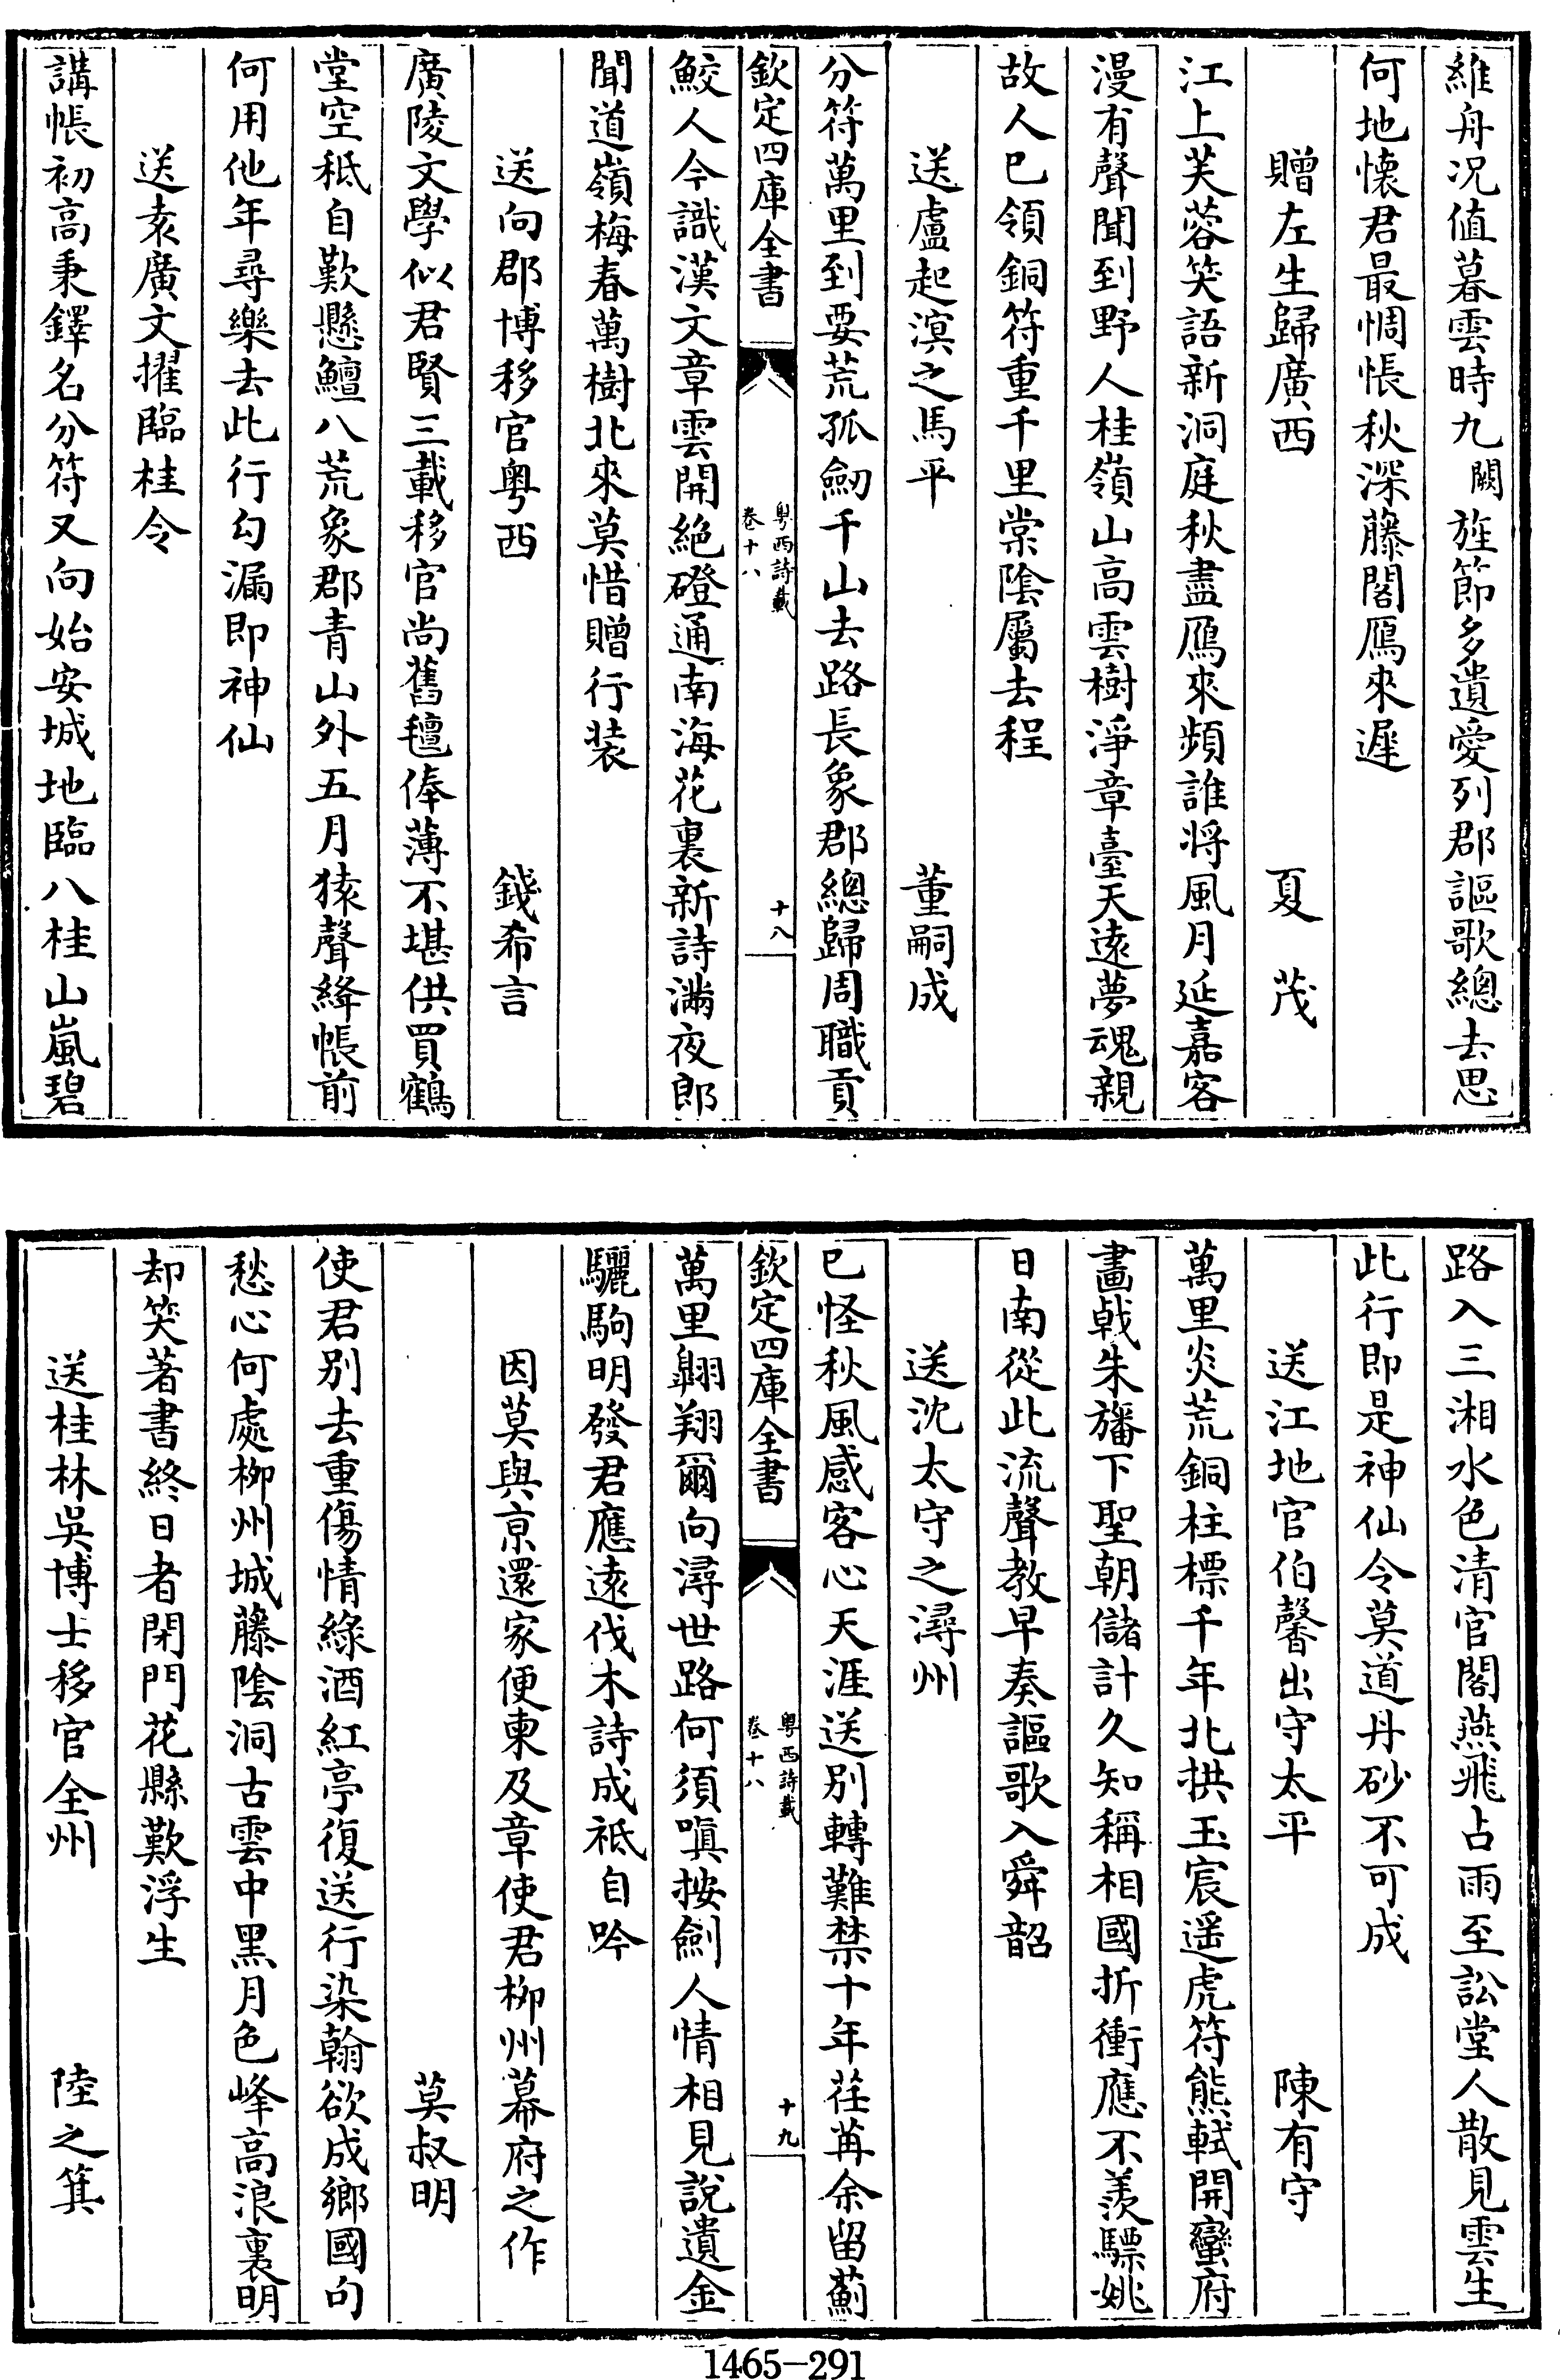 維舟況值暮雲時九闕旌節多遺愛列郡謳歌總去思
何地懷君最惆悵秋深藤閣鴈來遲
贈左生歸廣西 夏茂
江上芙蓉笑語新洞庭秋盡鴈來頻誰將風月延嘉客
漫有聲聞到野人桂嶺山高雲樹淨章臺天遠夢魂親
故人已領銅符重千里棠陰屬去程
送盧起溟之馬平 董嗣成
分符萬里到要荒孤劒千山去路長象郡總歸周職貢
欽定四庫全書 粵西詩載 卷十八 十八
鮫人今識漢文章雲開絕磴通南海花裏新詩滿夜郎
聞道嶺梅春萬樹北來莫惜贈行裝
送向郡博移官粵西 錢希言
廣陵文學似君賢三載移官尚舊氊俸薄不堪供買鶴
堂空秪自歎懸鱣八荒象郡青山外五月猿聲絳帳前
何用他年尋樂去此行勾漏即神仙
送袁廣文擢臨桂令
講帳初高秉鐸名分符又向始安城地臨八桂山嵐碧
路入三湘水色清官閣燕飛占雨至訟堂人散見雲生
此行即是神仙令莫道丹砂不可成
送江地官伯馨出守太平 陳有守
萬里炎荒銅柱標千年北拱玉宸遥虎符熊軾開蠻府
畫戟朱旛下聖朝儲計久知稱相國折衝應不羨驃姚
日南從此流聲教早奏謳歌入舜韶
送沈太守之潯州
已怪秋風感客心天涯送別轉難禁十年荏苒余留薊
欽定四庫全書 粵西詩載 卷十八 十九
萬里翺翔爾向潯世路何須嗔按劍人情相見說遺金
驪駒明發君應遠伐木詩成祗自吟
因莫與京還家便柬及章使君柳州幕府之作
莫叔明
使君別去重傷情綠酒紅亭復送行染翰欲成鄉國句
愁心何處柳州城藤陰洞古雲中黑月色峰高浪裏明
却笑著書終日者閉門花縣歎浮生
送桂林吳博士移官全州 陸之箕
1465-291